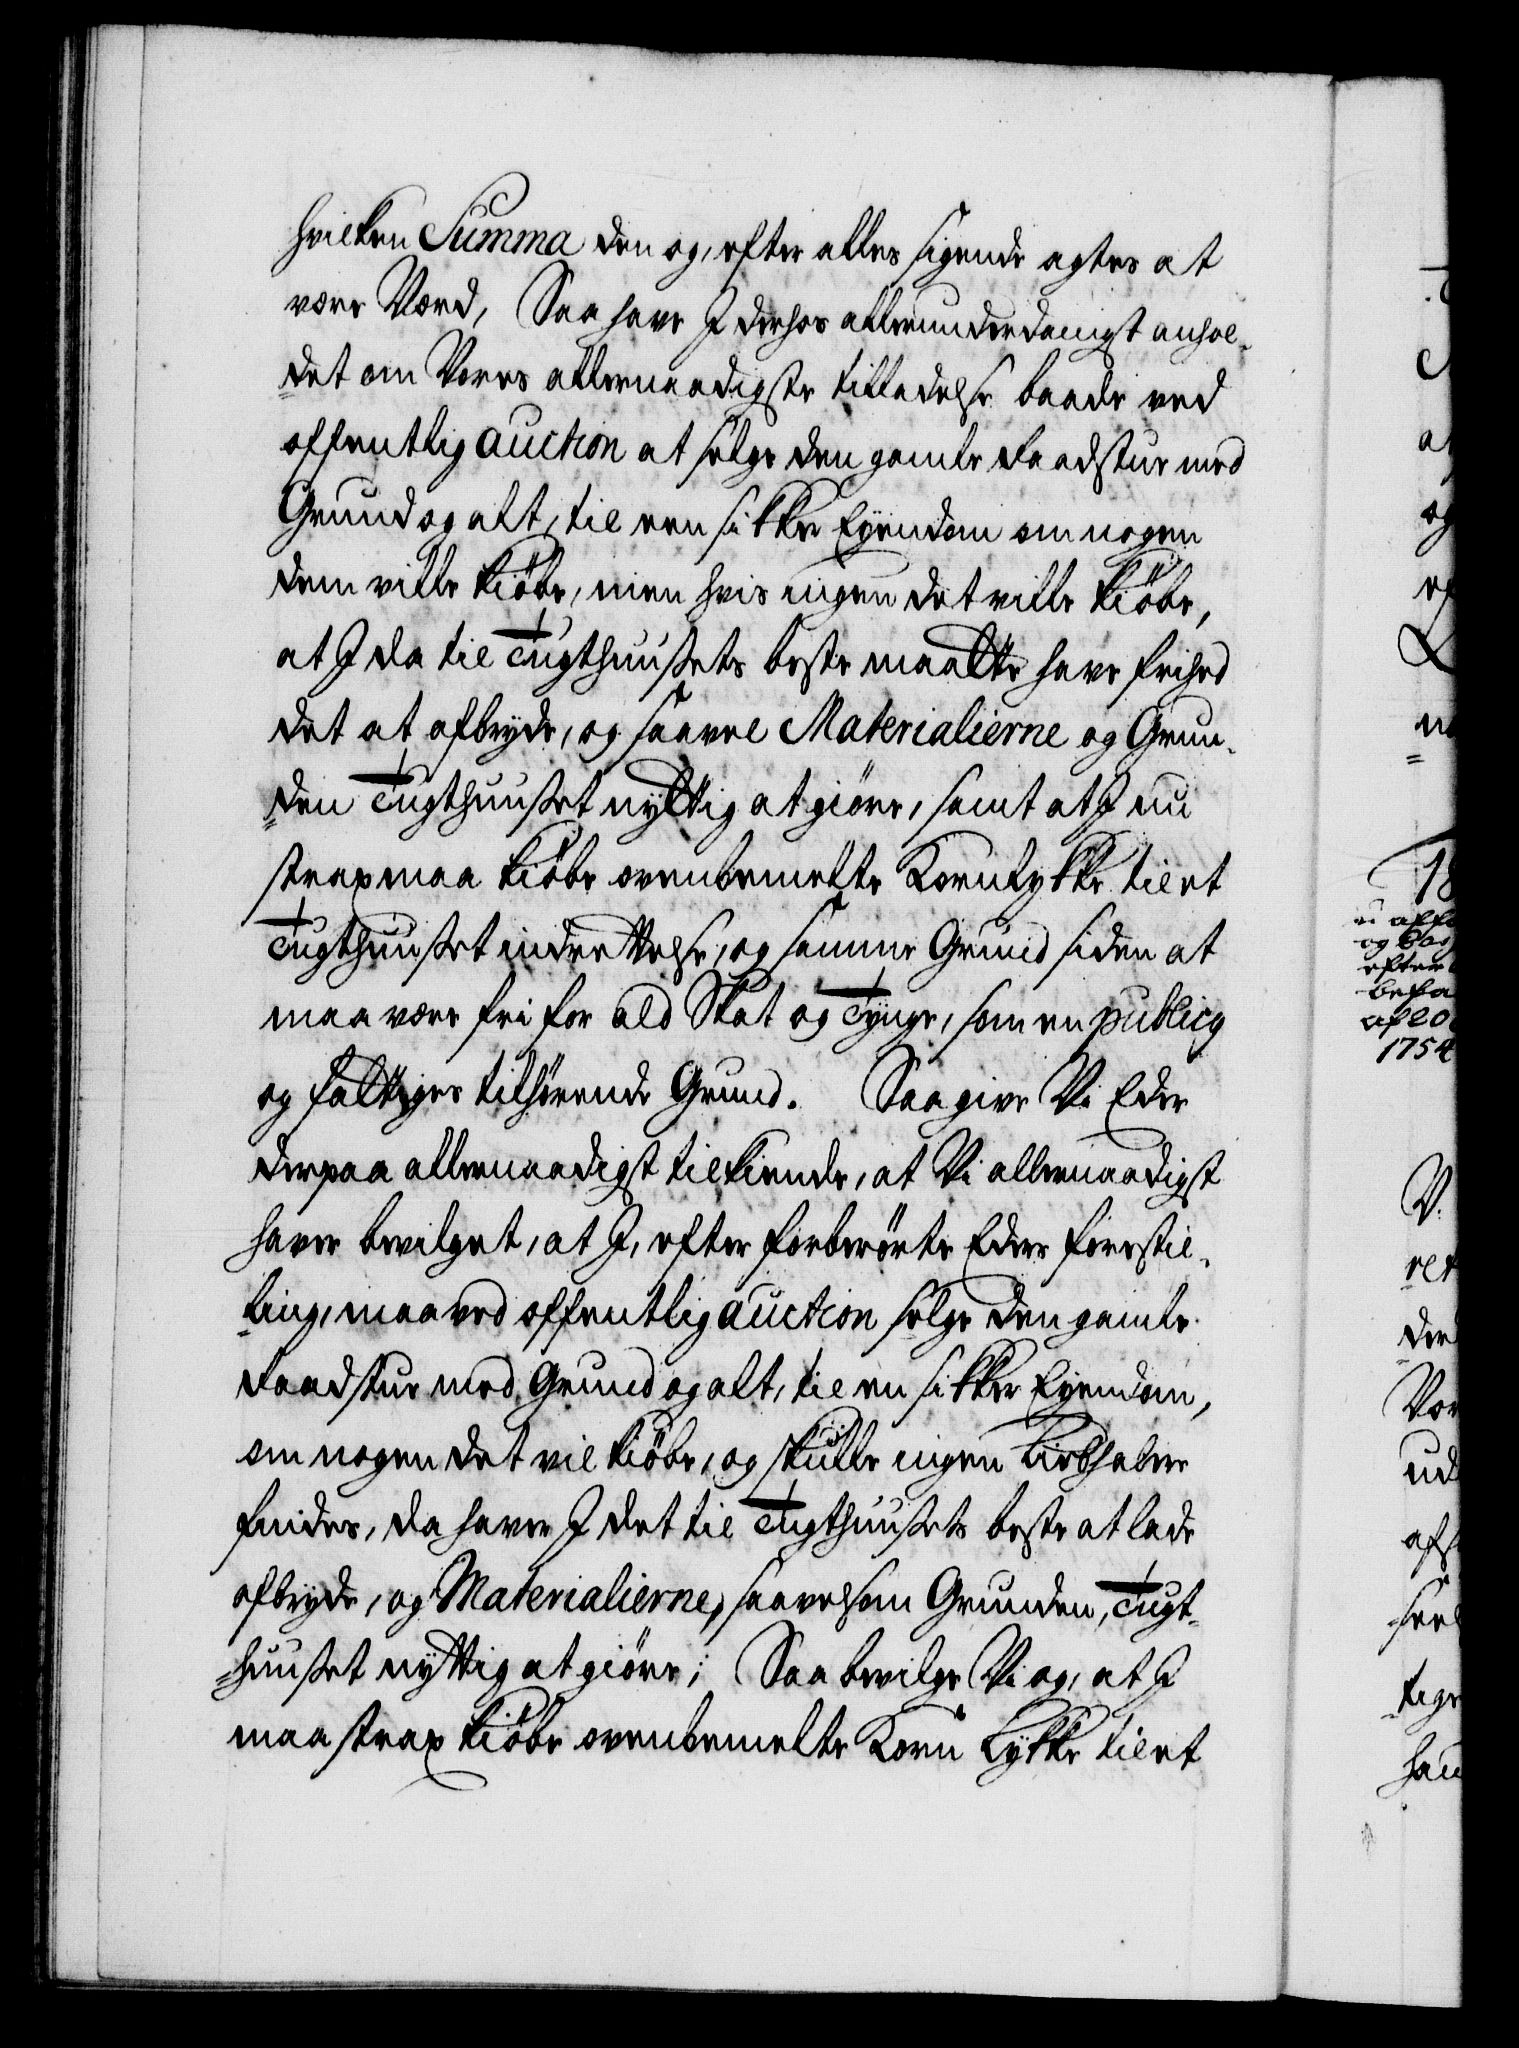 hvilken Summa den og, efter alles sigende agtes at
være Værd, Saa have I derhos allerunderdanigst anhol-
det om Vores allernaadigste tilladelse baade ved
offentlig auction at selge den gamle Raadstue med
Grund og alt, til een sikker Eyendom om nogen
dem ville kiöbe, men hvis ingen det ville kiöbe,
at I da til Tugthuusets beste maatte have frihed
det at afbryde, og saavel Materialierne og Grun-
den Tugthuuset nyttig at giöre, samt at I nu
strax maa kiöbe ovenbemelte Kornlykke til et
Tugthuuset indrettelse, og samme Grund siden at
maa være fri for ald Skat og Tynge, som en publicq
og fattiges tilhörende Grund. Saa give Vi Eder
derpaa allernaadigst tilkiende, at Vi allernaadigst
haver bevilget, at I, efter forberörte Eders forestil-
ling, maa ved offentlig auction selge den gamle
Raadstue med Grund og alt, til en sikker Eyendom,
om nogen det vil kiöbe, og skulle ingen Liebhabere
findes, da haver I det til Tugthuusets beste at lade
afbryde, og Materialierne, saavelsom Grunden, Tugt-
huuset nyttig at giöre; Saa bevilge Vi og, at I
maa strax kiöbe ovenbemelte Korn Lykke til et
18
og
efter
befa
af 20
1754